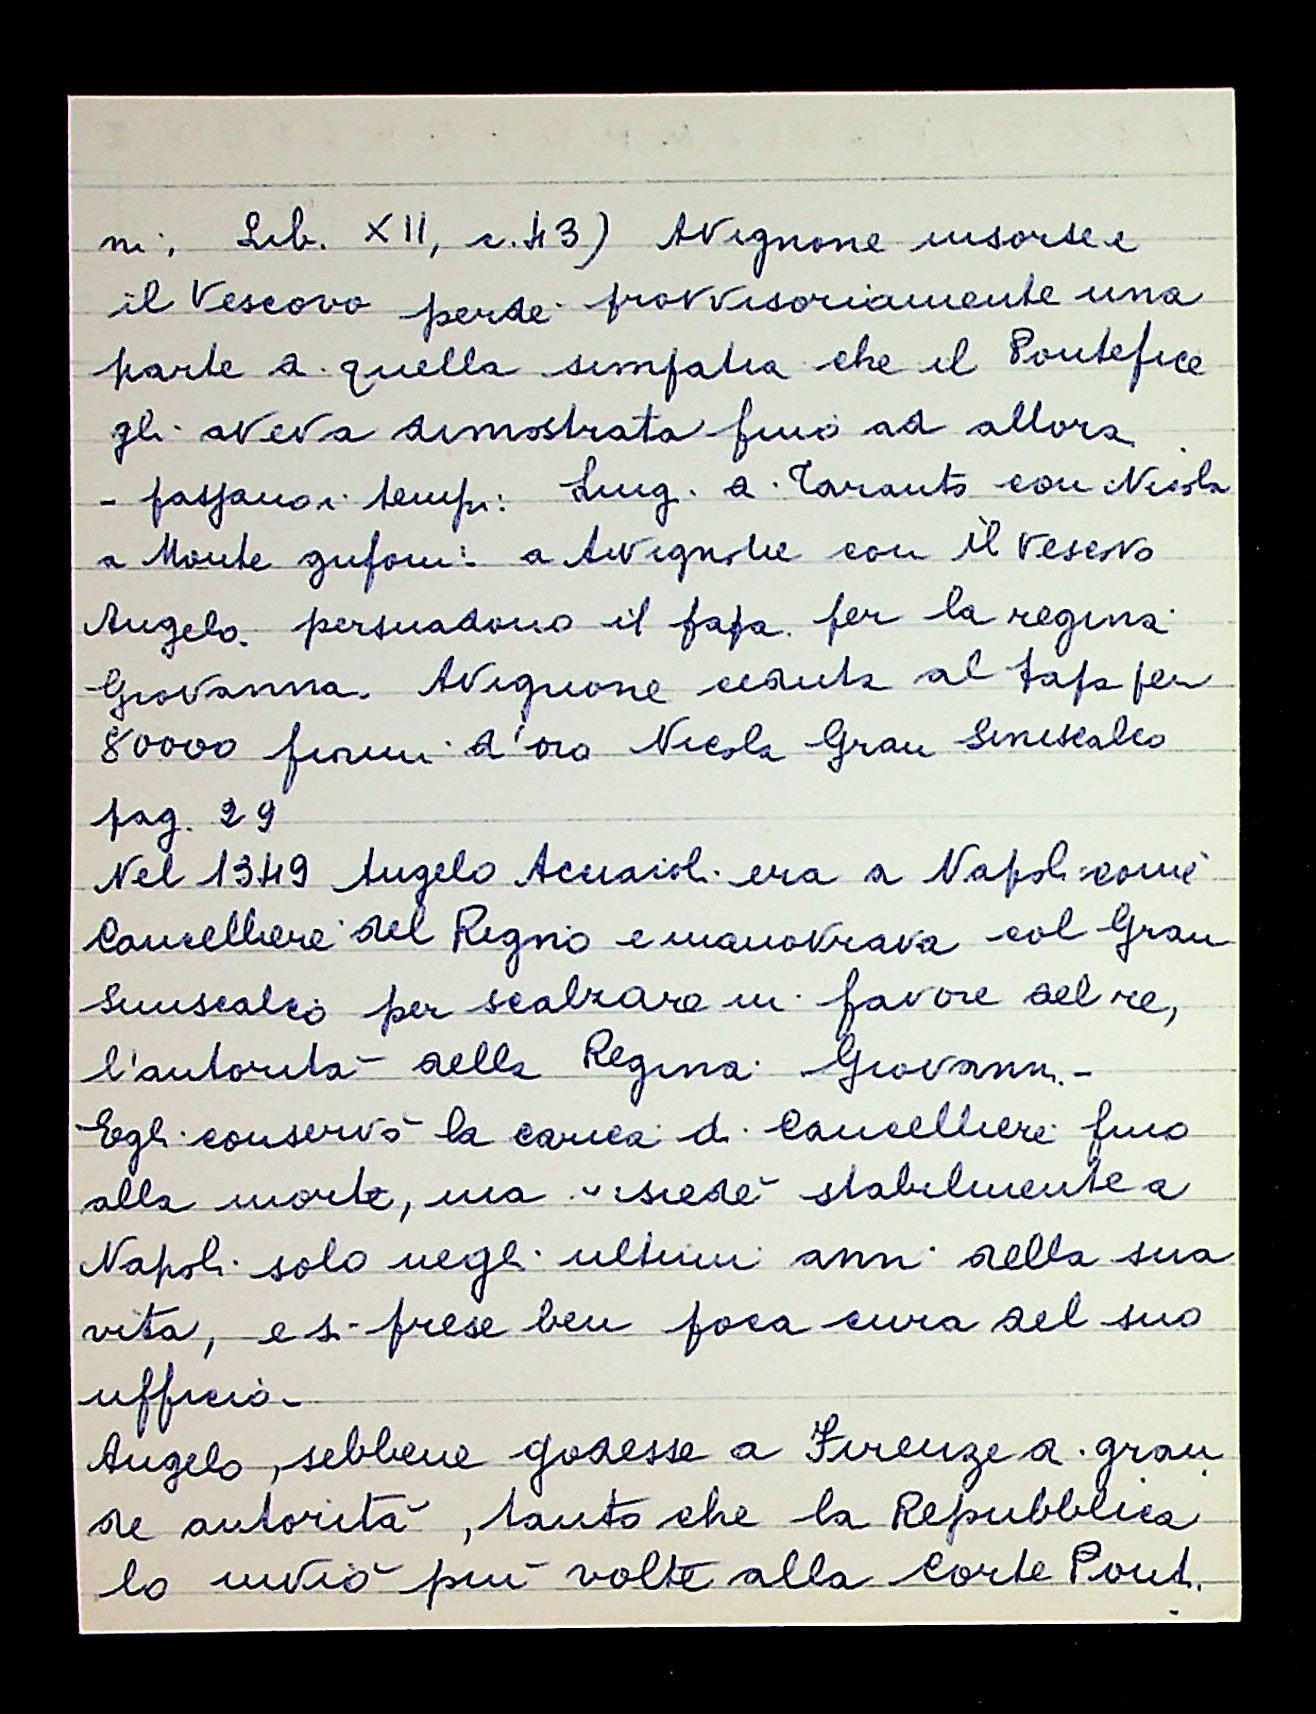 ni, Lib. XII, c. 43) Avignone insorse e
il Vescovo perdé provvisoriamente una
parte di quella simpatia che il Pontefice
gli aveva dimostrata fino ad allora
- passano i tempi: Luig. di Taranto con Nicola
a Monte gufoni: a Avignone con il Vescovo
Angelo. persuadono il papa per la regina
Giovanna. Avignone ceduta al Papa per
80000 fiorini d'oro Nicola Gran Siniscalco
pag. 29
Nel 1349 Angelo Acciaioli era a Napoli come
Cancelliere del Regno e manovrava col Gran
Siniscalco per scalzare in favore del re,
l'autorità della Regina Giovanni.-
Egli conservò la carica di Cancelliere fino
alla morte, ma risiedé stabilmente a
Napoli solo negli ultimi anni della sua
vita, e si prese ben poca cura del suo
ufficio.-
Angelo, sebbene godesse a Firenze di gran
de autorità, tanto che la Repubblica
lo inviò più volte alla Corte Pont.